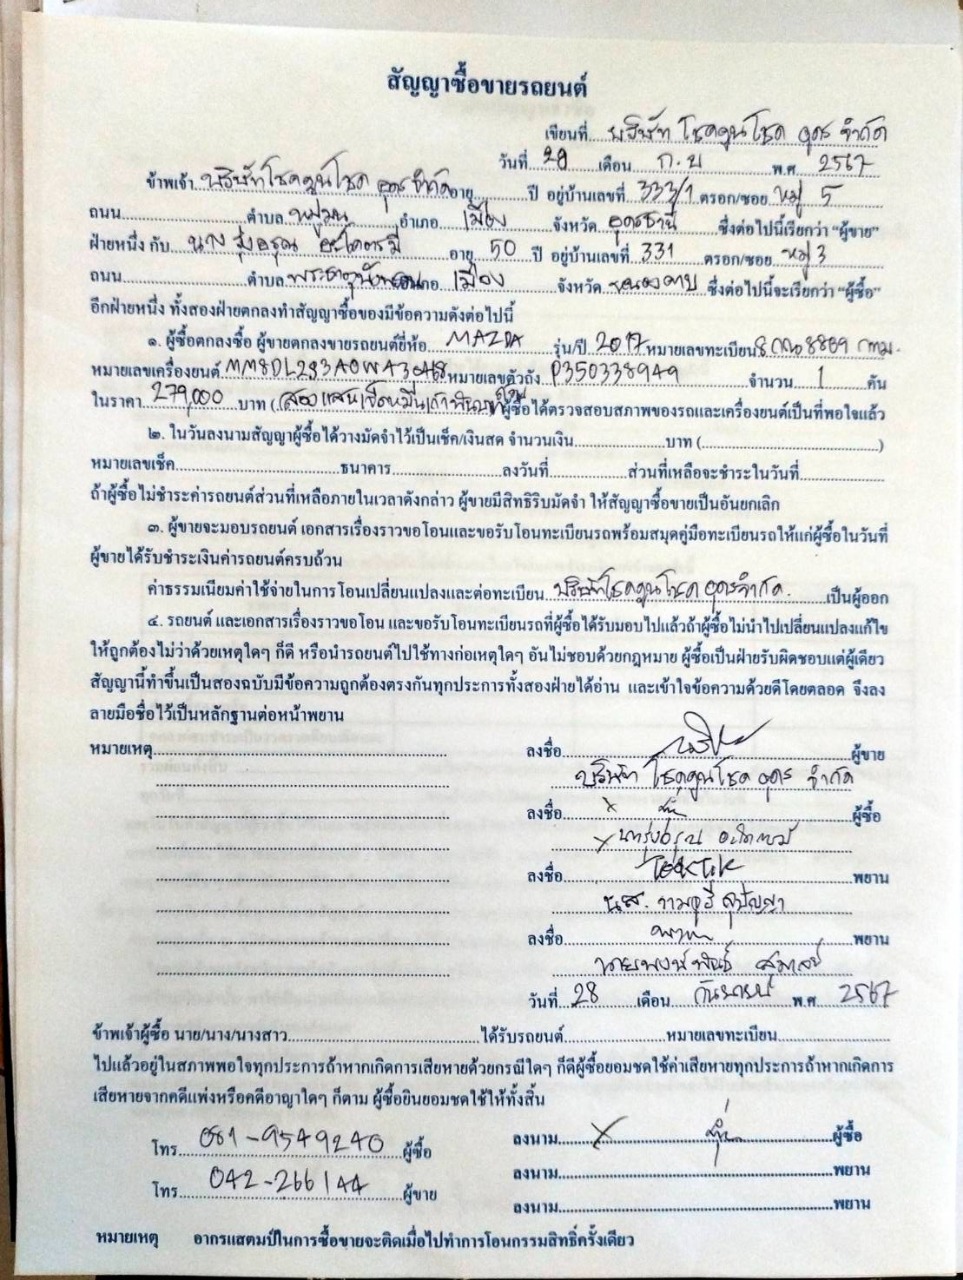 สัญญาซื้อขายรถยนต์
เขียนที่....บริษัท โชคคูนโชค อุดร จำกัด
วันที่ 28 เดือน ก.ย พ.ศ 2567
ข้าพเจ้า บริษัทโชคคูนโชค อุดรจำกัด อายุ..........ปี อยู่บ้านเลขที่ 333/1 ตรอก/ซอย หมู่ 5
ถนน..............................ตำบล หมูม่น อำเภอ เมือง จังหวัด อุดรธานี ซึ่งต่อไปนี้เรียกว่า “ผู้ขาย”
ฝ่ายหนึ่ง กับ นาง รุ่งอรุณ อายุ 50 ปี อยู่บ้านเลขที่ 331 ตรอก/ซอย หมู่ 3
ถนน..............................ตำบล อำเภอ เมือง จังหวัด ซึ่งต่อไปนี้จะเรียกว่า “ผู้ซื้อ”
อีกฝ่ายหนึ่ง ทั้งสองฝ่ายตกลงทำสัญญาซื้อของมีข้อความดังต่อไปนี้
๑. ผู้ซื้อตกลงซื้อ ผู้ขายตกลงขายรถยนต์ยี่ห้อ MAZDA รุ่น/ปี 2017 หมายเลขทะเบียน 8869 กทม.
หมายเลขเครื่องยนต์ หมายเลขตัวถัง P350338949 จำนวน 1 คัน
ในราคา 279,000 บาท (สองแสนเจ็ดหมื่นเก้าพันบาทถ้วน ผู้ซื้อได้ตรวจสอบสภาพของรถและเครื่องยนต์เป็นที่พอใจแล้ว
๒. ในวันลงนามสัญญาผู้ซื้อได้วางมัดจำไว้เป็นเช็ค/เงินสด จำนวนเงิน....................บาท (........................................)
หมายเลขเช็ค....................................ธนาคาร........................ลงวันที่.................ส่วนที่เหลือจะชำระในวันที่...................
ถ้าผู้ซื้อไม่ชำระค่ารถยนต์ส่วนที่เหลือภายในเวลาดังกล่าว ผู้ขายมีสิทธิริบมัดจำ ให้สัญญาซื้อขายเป็นอันยกเลิก
๓. ผู้ขายจะมอบรถยนต์ เอกสารเรื่องราวขอโอนและขอรับโอนทะเบียนรถพร้อมสมุดคู่มือทะเบียนรถให้แก่ผู้ซื้อในวันที่
ผู้ขายได้รับชำระเงินค่ารถยนต์ครบถ้วน
ค่าธรรมเนียมค่าใช้จ่ายในการโอนเปลี่ยนแปลงและต่อทะเบียน บริษัทโชคคูนโชค อุดรจำกัด. เป็นผู้ออก
๔. รถยนต์ และเอกสารเรื่องราวขอโอน และขอรับโอนทะเบียนรถที่ผู้ซื้อได้รับมอบไปแล้วถ้าผู้ซื้อไม่นำไปเปลี่ยนแปลงแก้ไข
ให้ถูกต้องไม่ว่าด้วยเหตุใดๆ ก็ดี หรือนำรถยนต์ไปใช้ทางก่อเหตุใดๆ อันไม่ชอบด้วยกฎหมาย ผู้ซื้อเป็นฝ่ายรับผิดชอบแต่ผู้เดียว
สัญญานี้ทำขึ้นเป็นสองฉบับมีข้อความถูกต้องตรงกันทุกประการทั้งสองฝ่ายได้อ่าน และเข้าใจข้อความด้วยดีโดยตลอด จึงลง
ลายมือชื่อไว้เป็นหลักฐานต่อหน้าพยาน
หมายเหตุ........................................ ลงชื่อ........................................ผู้ขาย
บริษัท โชคคูนโชค อุดร จำกัด
ลงชื่อ........................................ผู้ซื้อ
ลงชื่อ........................................พยาน
น.ส.
ลงชื่อ........................................พยาน
วันที่ 28 เดือน กันยายน พ.ศ 2567
ข้าพเจ้าผู้ซื้อ นาย/นาง/นางสาว........................................ได้รับรถยนต์.........................หมายเลขทะเบียน.........................
ไปแล้วอยู่ในสภาพพอใจทุกประการถ้าหากเกิดการเสียหายด้วยกรณีใดๆ ก็ดีผู้ซื้อยอมชดใช้ค่าเสียหายทุกประการถ้าหากเกิดการ
เสียหายจากคดีแพ่งหรือคดีอาญาใดๆ ก็ตาม ผู้ซื้อยินยอมชดใช้ให้ทั้งสิ้น
โทร 081-9549240 ผู้ซื้อ ลงนาม........................................ผู้ซื้อ
ลงนาม........................................พยาน
โทร 042-266144 ผู้ขาย
ลงนาม........................................พยาน
หมายเหตุ อากรแสตมป์ในการซื้อขายจะติดเมื่อไปทำการโอนกรรมสิทธิ์ครั้งเดียว